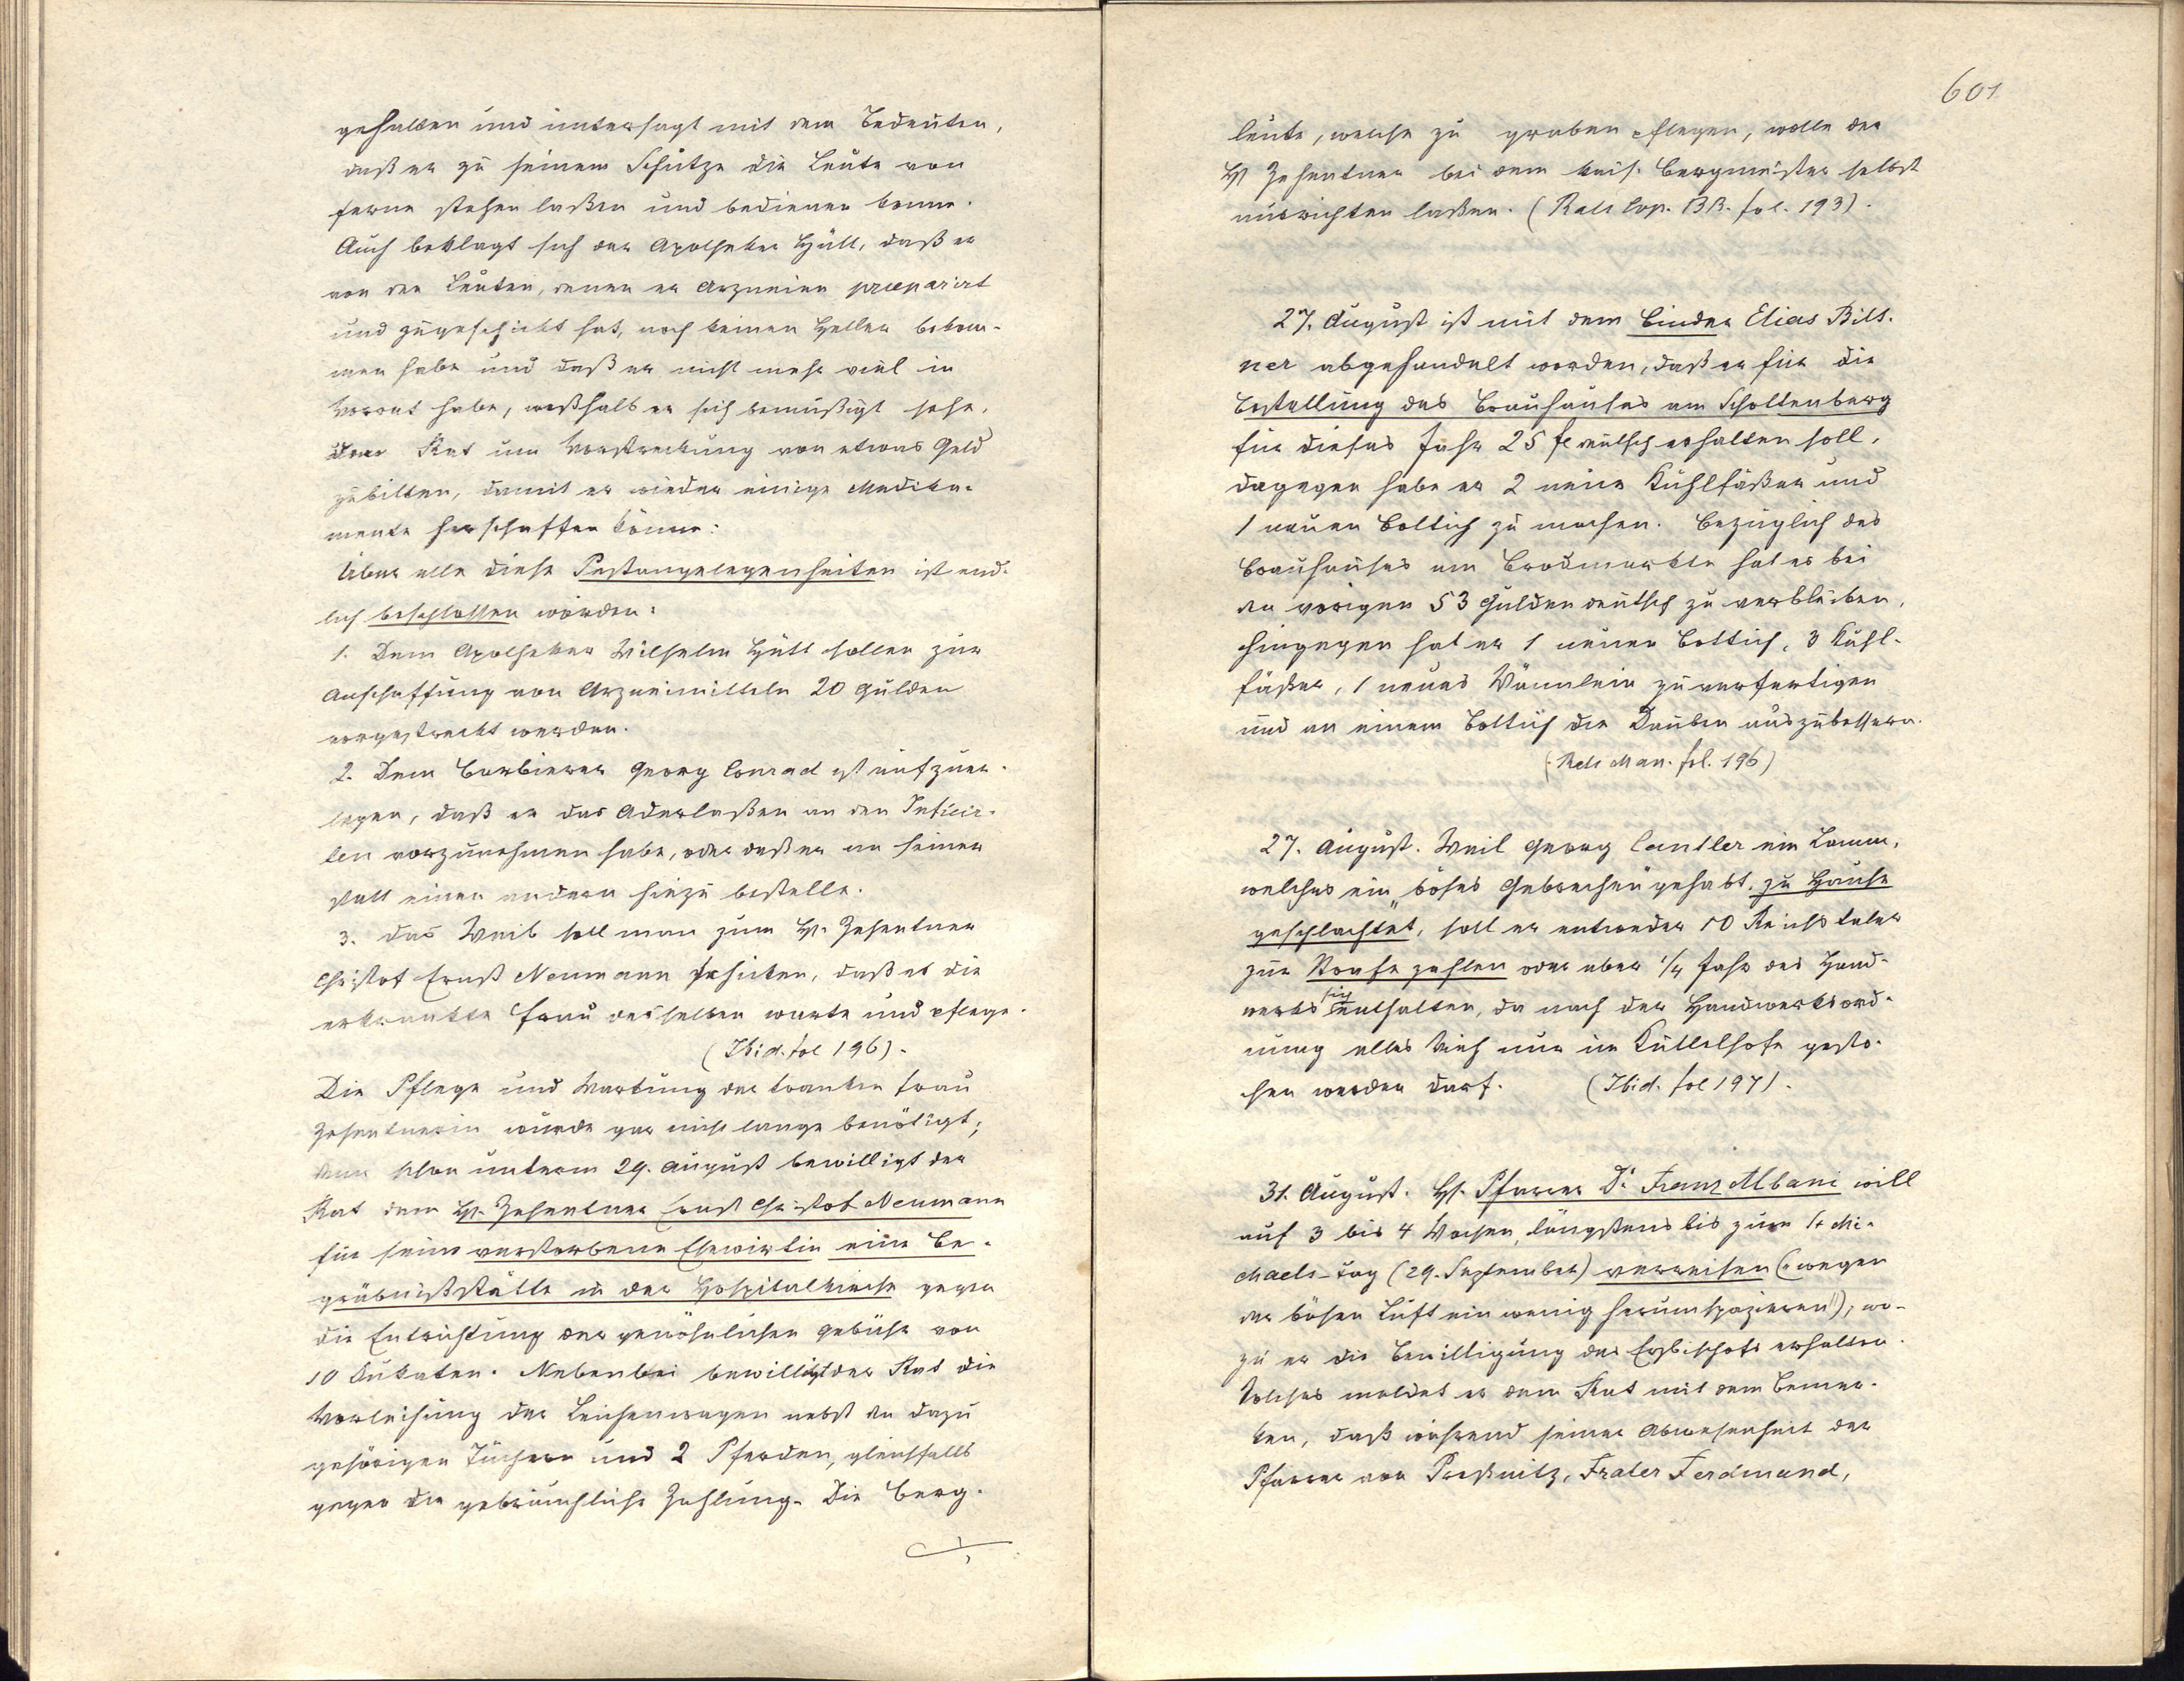 gehalten und untersagt mit dem Bedeuten,
daß er zu seinem Schutze die Leute von
ferne stehen laßen und bedienen könne.
Auch beklagt sich der Apotheker Hütt, daß er
von den Leuten, denen er Arzneien praepariert
und zugeschickt hat, noch keinen Heller bekom-
men habe und daß er nicht mehr viel in
Vorrat habe, weßhalb er sich bemüßigt sehe,
den Rat um Vorstreckung von etwas Geld
zubitten, damit er wieder einige Medika-
mente herschaffen könne:
Über alle diese Pestangelegenheiten ist end-
lich beschlossen worden:
1. Dem Apotheker Wilhelm Hütt sollen zur
Anschaffung von Arzneimitteln 20 Gulden
vorgestreckt werden.
2. Dem Barbierer Georg Conrad ist aufzuer-
legen, daß er das Aderlaßen an den Inficir-
ten vorzunehmen habe, oder daß er an seiner
statt einen andern hiezu bestelle.
3. das Weib soll man zum H. Zehentner
Christof Ernst Neumann schicken, daß es die
erkrankte Frau desselben warte und pflege.
(Ibid. fol 196).
Die Pflege und Wartung der kranken Frau
Zehentnerin wurde gar nicht lange benötigt;
denn schon unterm 29. August bewilligt der
Rat dem H. Zehentner Ernst Christof Neumann
für seine verstorbene Ehewirtin eine Be-
gräbnißstätte in der Hospitalkirche gegen
die Entrichtung der gewöhnlichen Gebühr von
10 Dukaten. Nebenbei bewilligt der Rat die
Verleihung der Leichenwagen nebst den dazu
gehörigen Tüchern und 2 Pferden, gleichfalls
gegen die gebräuchliche Zahlung. Die Berg-
601
leute, welche zu graben pflegen, wolle der
H Zehentner bei dem kais. Bergmeister selbst
ausrichten laßen. (Rats Cop. BB. fol. 193).
27. August ist mit dem Binder Elias Bitt-
ner abgehandelt worden, daß er für die
Bestellung des Brauhauses am Schottenberg
für dieses Jahr 25 fl deutsch erhalten soll,
dagegen habe er 2 neue Kühlfäßer und
1 neuen Bottich zu machen. Bezüglich des
Brauhauses am Brodmarkte hat es bei
den vorigen 53 Gulden deutsch zu verbleiben,
hingegen hat er 1 neuen Bottich, 3 Kühl-
fäßer, 1 neues Wännlein zu verfertigen
und an einem Bottich die Dauben auszubessern.
(Rats Man. fol. 196)
27. August. Weil Georg Cantler ein Lamm,
welches ein "böses Gebrechen" gehabt, zu Hause
geschlachtet, soll er entweder 10 Reichstaler
zur Strafe zahlen oder aber 1/4 Jahr des Hand-
werks sich enthalten, da nach der Handwerksord-
nung alles Vieh nur im Kuttelhofe gesto-
chen werden darf. (Ibid. fol 197).
31. August. H. Pfarrer Dr Franz Albani will
auf 3 bis 4 Wochen, längstens bis zum St Mi-
chaels-Tag (29. September) verreisen ("wegen
der bösen Luft ein wenig herumspazieren"); wo-
zu er die Bewilligung des Erzbischofs erhalten.
Solches meldet er dem Rat mit dem Bemer-
ken, daß während seiner Abwesenheit der
Pfarrer von Preßnitz, Frater Ferdinand,